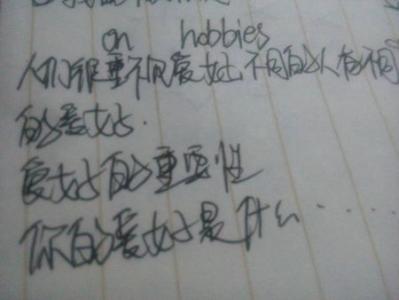 on hobbies
人们很重视爱好 不同的人有不同
的爱好.
爱好的重要性
你的爱好是什么......